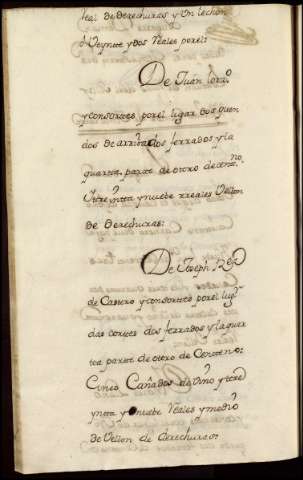 leal de derechuras y Un lechon
o Veyntte y dos Reales por el:
De Juan lorzo.
y consortes por el lugar dos quin
dos de arriba dos ferrados y la
quartta partte de ottro de Centtno.
Ttreyntta y nuebe rreales Vellon
de derechuras:
De Joseph Rez
de Castro y consorttes por el lugr
das corttes dos ferrados y la quar
tta partte de ottro de Centteno:
Cinco Cañados de Vino y ttre
yntta y nuebe Reales y medio
de Vellon de derechuras: